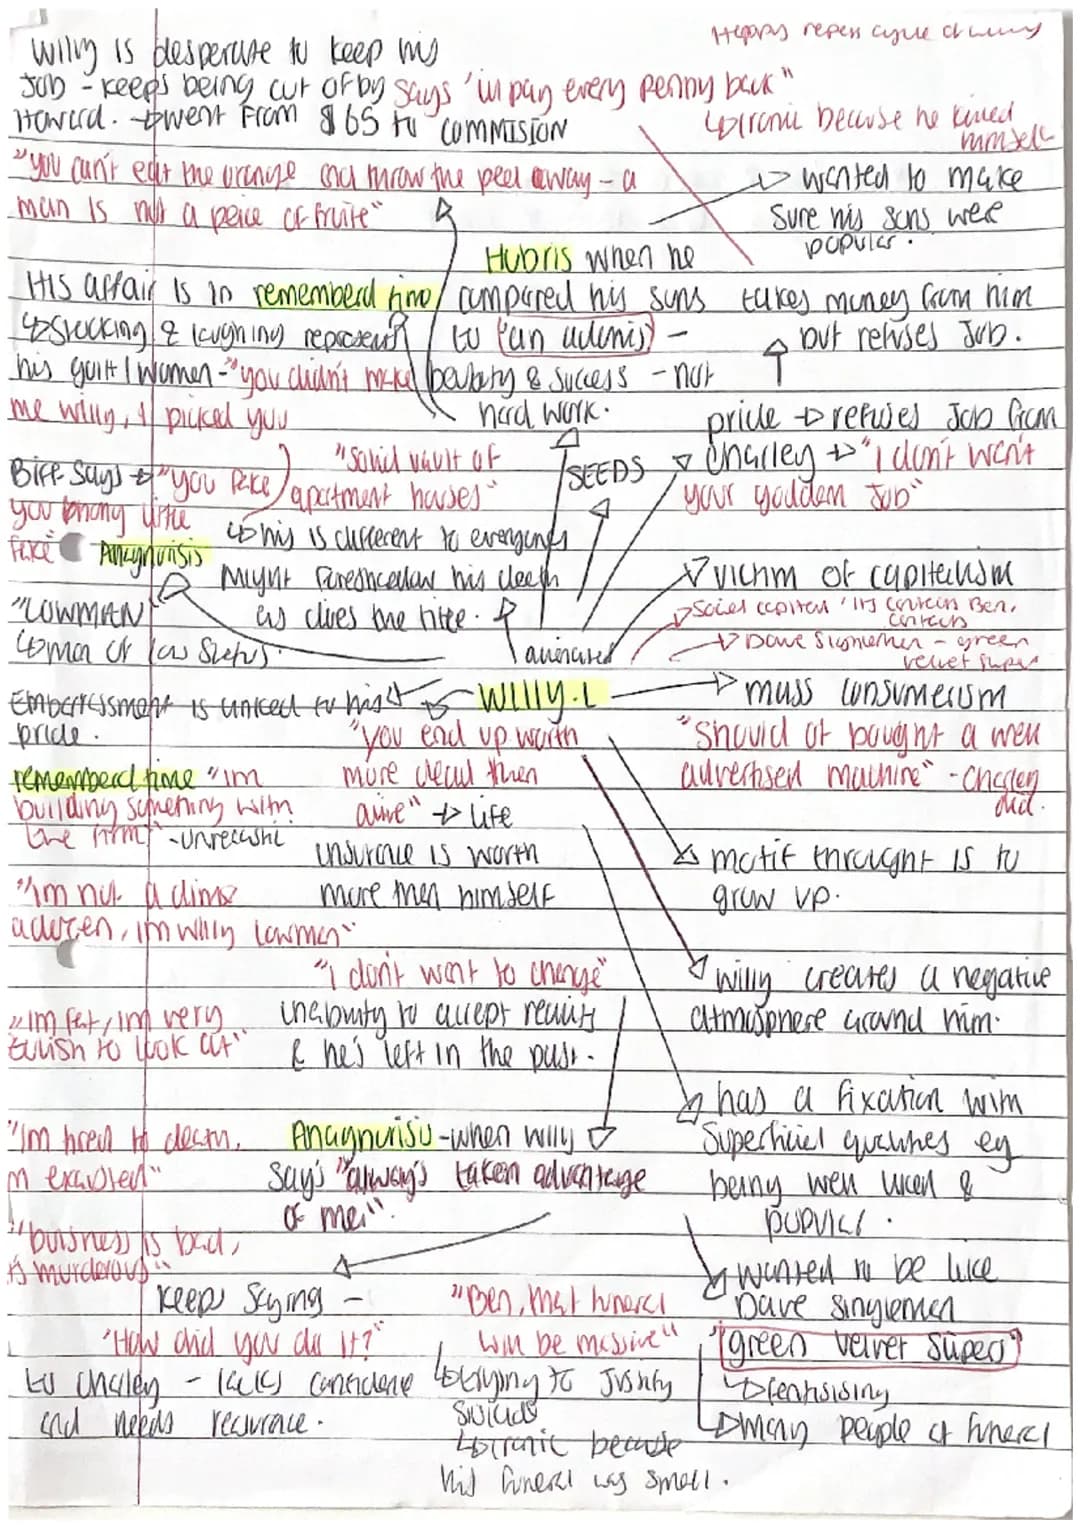 Happy repeats cycle of willy
Willy is desperate to keep his
Job - keeps being cut of by says 'ill pay every penny back"
Howard. → went from $65 to commision
↳ ironic because he killed himself
"you can't eat the orange and throw the peel away - a
man is not a peice of fruite"
→ wanted to make
sure his sons were
popular.
Hubris when he
compared his sons
to "an adonis" -
beutaty & success - not
hard work.
takes money from him
but refuses Job.
His affair is in rememberd time
↳ stocking & laughing represents
his guilt / women - "you didn't make
me willy, I picked you
pride → refuses Job from
Charley → "I don't want
your goddam Job"
SEEDS
Biff says → "you fake
you phony little
fake"
Anagnorisis
"solid vault of
apartment houses"
↳ this is different to everyones
Might foreshadow his death
as dives the title.
alienated
"LOWMAN"
↳ man of low status.
victim of capitalism
→ Social capital 'its contacts Ben, contacts
→ Dave Singleman - green
velvet slippers
WILLY.L
→ mass consumerism
Embarressment is linked to his
pride.
"you end up worth
more dead then
alive" → life
insurance is worth
more then himself
"should of bought a well
advertised machine" - Charley did.
rememberd time "im
building something with
the firm" - unrealistic
motif throught is to
grow up.
"im not a dime
adozen, im willy lowman"
"I don't want to change"
inability to accept reality
& he's left in the past.
willy creates a negative
atmosphere around him.
"im fat, im very
foolish to look at"
has a fixation with
superficial qualities eg
being well liked &
popular.
"Im tired to death,
m exausted"
Anagnorisis - when willy
say's "always taken advantage
of me".
"buisness is bad,
is murderous"
wanted to be like
Dave singleman
"green velvet slippers"
↳ fantisising
→ many people at funeral
Keeps saying -
"How did you do it?"
to charley - lacks confidence
and needs reasurance.
"Ben, that funeral
will be massive"
↳ trying to Justify
suicide
↳ ironic because
his funeral was small.